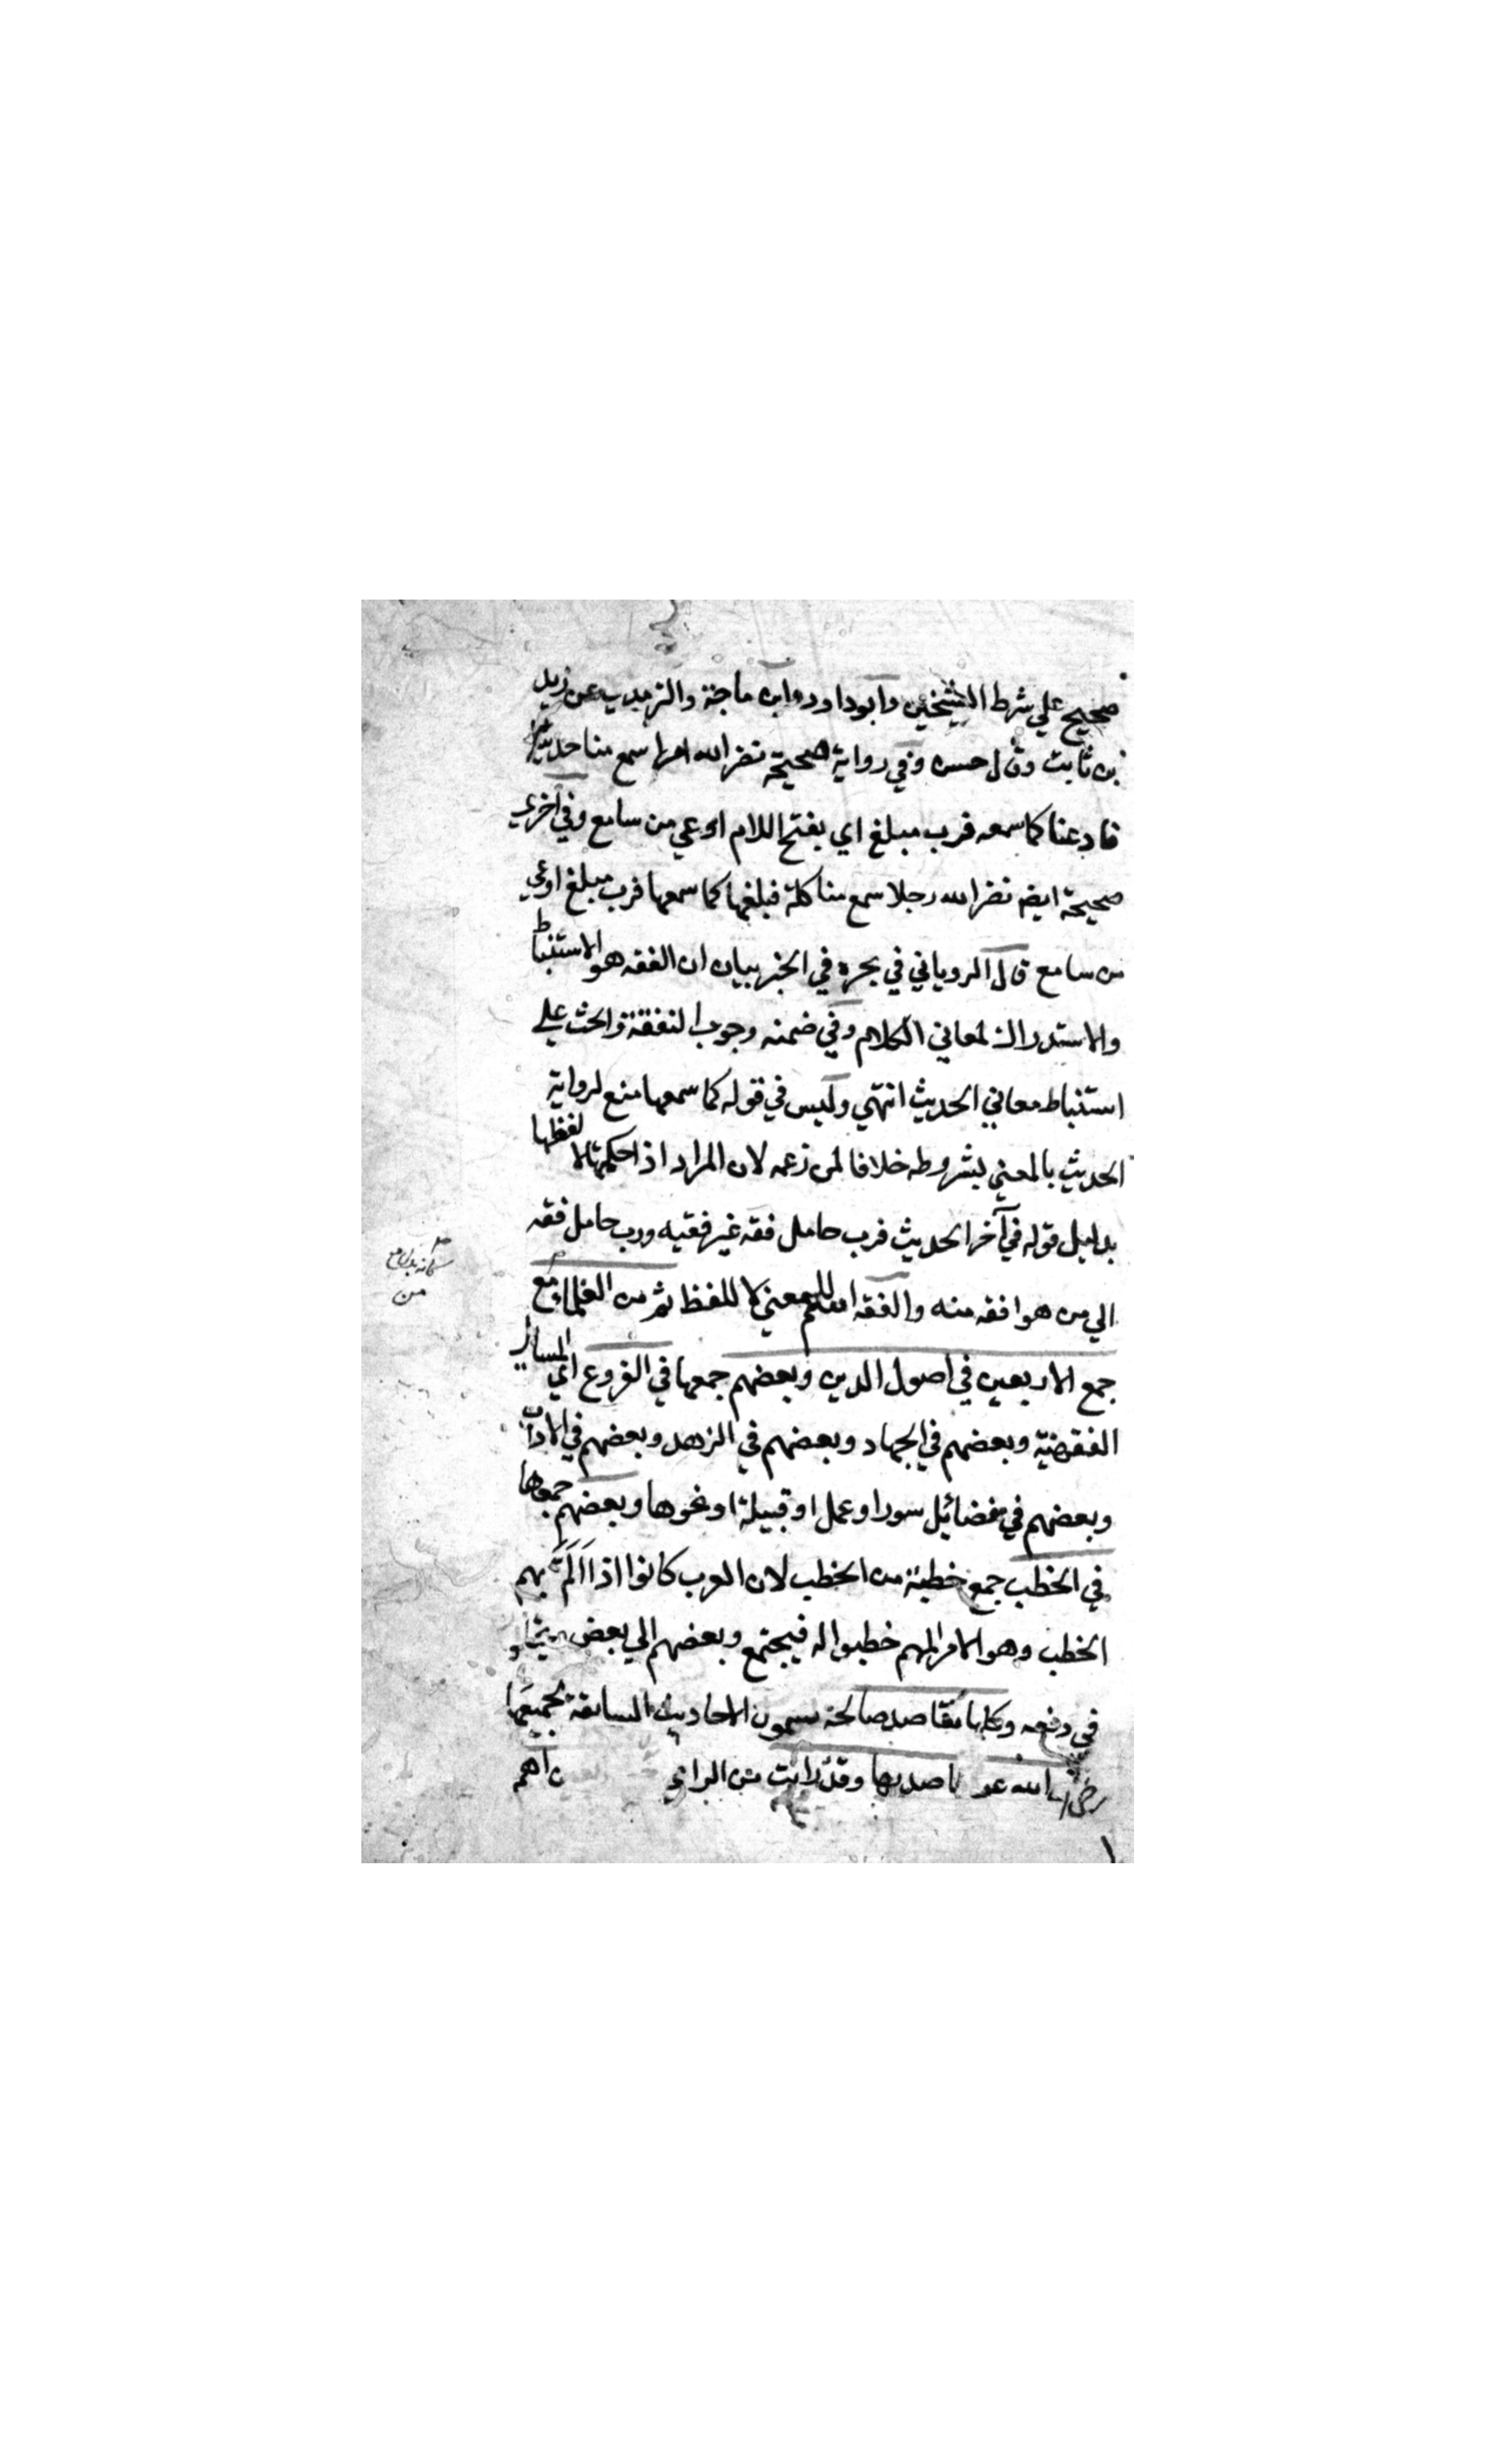 صحيح علي شرط الشيخين وابوداود وابن ماجة والترمذي عن زيد
بن ثابت وقال حسن وفي رواية صحيحة نضر الله امرا سمع منا حديثا
فادعنا كما سمعه فرب مبلغ اي بفتح اللام اوعي من سامع وفي اخري
صحيحة ايضا نضر الله رجلا سمع منا كلمة فبلغها كما سمعها فرب مبلغ اوعي
من سامع قال الروياني في بحره في الخبر بيان ان الفقه هو الاستنباط
والاستدراك لمعاني الكلام وفي ضمنه وجوب التفقه والحث علي
استنباط معاني الحديث انتهي وليس في قوله كما سمعها منع لرواية
الحديث بالمعني بشروطه خلافا لمن زعمه لان المراد اذ احكمها لا لفظها
بدليل قوله في آخر الحديث فرب حامل فقه غير فقيه ورب حامل فقه
الي من هو افقه منه والفقه للمعني لا للفظ ثم من العلماء مع
جمع الاربعين في اصول الدين وبعضهم جمعها في الفروع اي المسايل
الفقهية وبعضهم في الجهاد وبعضهم في الزهد وبعضهم في الاداب
وبعضهم في فضائل سور او عمل او قبيلة او نحوها وبعضهم جمعها
في الخطب جمع خطبة من الخطب لان العرب كانوا اذا اَلَمَّ بهم
الخطب وهو الامر المهم خطبوا له فيجتمع وبعضهم الي بعض
في دفعه وكلها مقاصد صالحة يسمون الاحاديث السابقة بجميعها
رضي الله عن قاصديها وقد رايت من الراي اهم
من